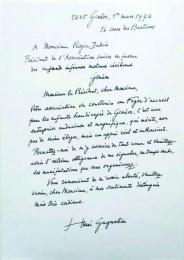 1205 Genève, 1er mars 1974
16 cours des Bastions
A Monsieur Roger Dubois
Président de l'Association Suisse en faveur
des enfants infirmes moteurs cérébraux
Genève
Monsieur le Président, cher Monsieur,
Votre association va construire un foyer d'accueil
pour les enfants handicapés de Genève. C'est une
entreprise audacieuse et magnifique, qui mérite, non
pas de mieux, mais un appui réel et enthousiaste.
Permettez-moi de m'y associer de tout cœur et veuillez
avoir l'extrême obligeance de me signaler, en temps utile,
les manifestations que vous organiserez.
Vous remerciant de m'avoir alerté, veuillez
croire, cher Monsieur, à mes sentiments distingués
mais très cordiaux.
Henri Gagnebin